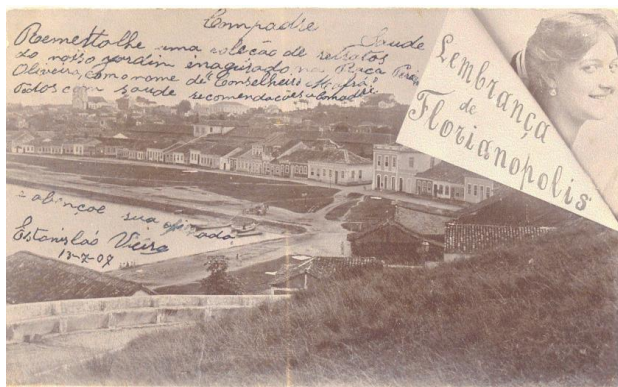 Compadre
Saude
Remettolhe uma coleção de retratos
do nosso jardim inagurado na Praça
Oliveira, com o nome de Conselheiro
Todos com saude recomendações
Lembrança
de
Florianopolis
abençoe sua
Estanislao Vieira